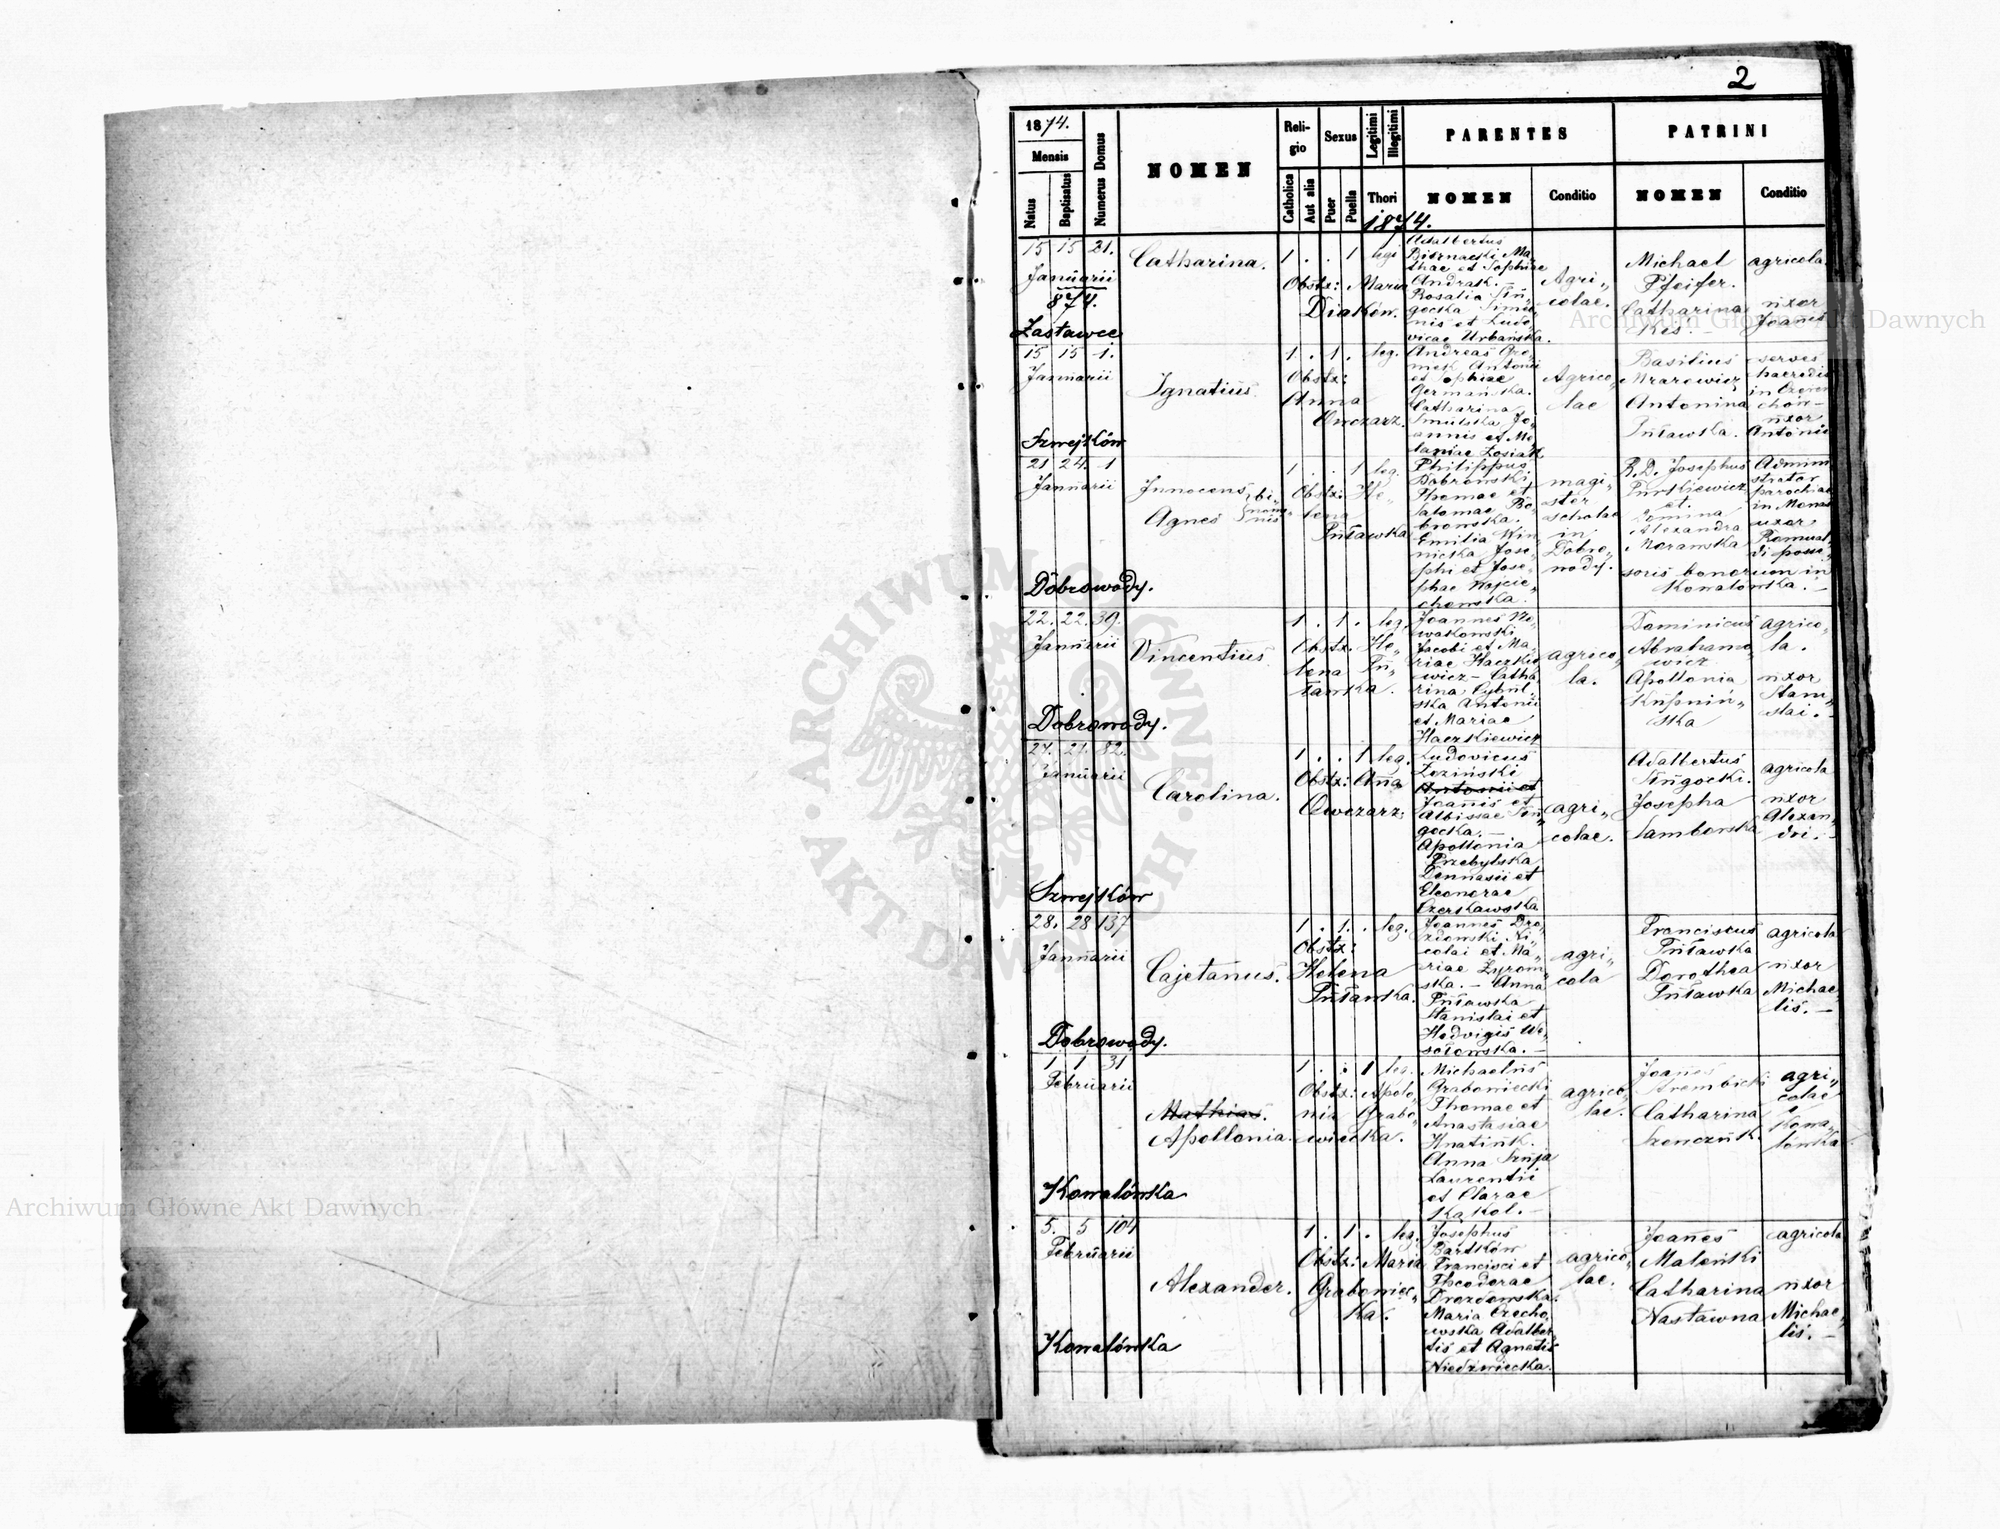 2
1874.
Mensis
Natus
Baptisatus
Numerus Domus
NOMEN
Reli-
gio
Catholica
Aut alia
Sexus
Puer
Puella
Legitimi
Illegitimi
Thori
PARENTES
NOMEN
Conditio
PATRINI
NOMEN
Conditio
1874.
15 15 21.
Januarii
874.
Zastawce
Catharina.
1 . . 1 legi
Obstx: Maria
Diaków.
Adalbertus
Biernacki Ma-
thae et Sophiae
Andrak. —
Rosalia
vicae Urbańska.
Agri„
colae.
Michael
Pfeifer.
Catharina
Kis.
agricola.
uxor
Joanis
15 15 1.
Januarii
Szwejków
Ignatius
1 . 1 . leg.
Obstx:
Anna
Owczarz.
Andreas Gre„
mek Antonii
et Sophiae
Germańska.
Catharina
Smulska Jo„
annis et Me„
laniae Łosiak
Agrico„
lae
Basilius
Antonina
Puławka.
uxor
Antonii
21 24. 1
Januarii
Dobrowody.
Innocens
Agnes
bi„
nomi„
nis
1 . . 1 leg.
Obstx: He„
lena
Puławka
Philippus
Dobrowski
Thomae et
Salomae Bo„
browska.
Emilia Win„
nicka Jose„
phi et Jose„
phae Wojcie„
chowska.
magi„
ster
scholae
in
Dobro„
wody.
R. D. Josephus
Turkiewicz
et
Domina
Alexandra
Morawska
Admini
strator
parochiae
in Monas
uxor
Romual„
di posse„
soris bonorum in
Kowalówka. —
22. 22. 39.
Januarii
Dobrowody.
Vincentius
1 . 1 . leg.
Obstx: He„
lena Pu„
ławka.
Joannes No„
wakowski
Jacobi et Ma„
riae Haczkie
wicz — Catha
rina Cybul„
ska Antonii
et Mariae
Haczkiewicz
agrico„
la.
Dominicus
Abrahamo„
wicz
Apollonia
Krupniń„
ska
agrico„
la.
uxor
Stani„
slai. —
27. 27. 82.
Januarii
Szwejków
Carolina.
1 . . 1 leg.
Obstx: Anna
Owczarz.
Ludovicus
Łoziński
Antonii et
Joanis et
gocka. —
Apollonia
Przebylska
Dennasii et
Eleonorae
Czerkawska
agri„
colae.
Adalbertus
Josepha
Samborska
agricola
uxor
Alexan„
dri. —
28. 28 137
Januarii
Dobrowody.
Cajetanus.
1 . 1. . leg.
Obstx:
Helena
Puławka.
Joannes Dro„
zdowski Ni„
colai et Ma„
riae Żyrom„
ska. — Anna
Puławka
Stanislai et
Hedvigis We„
sołowska. —
agri„
cola
Franciscus
Puławka
Dorothea
Puławka
agricola
uxor
Michae„
lis. —
1 1 31
Februarii
Kowalówka
Mathias.
Apollonia.
1 . . 1 leg.
Obstx: Apolo„
nia Grabo„
wiecka.
Michaelus
Graboniecki
Thomae et
Anastasiae
Hnatiuk.
Anna Szuja
Laurentii
et Clarae
Kąkol. —
agrico„
lae.
Joanes
Trembicki
Catharina
Szewczuk.
agri„
colae
e
Kowa„
lówka
5. 5 104
Februarii
Kowalówka
Alexander.
1 . 1 . leg.
Obstx: Maria
Graboniec„
ka.
Josephus
Bartków
Francisci et
Theodorae
Drozdowska.
Maria Orecho„
wska Adalber„
tis et Agnetis
Niedzwiecka.
agrico„
lae.
Joanes
Maleńki
Catharina
Nastawna
agricola
uxor
Michae„
lis. —
Archiwum Główne Akt Dawnych
Archiwum Główne Akt Dawnych
ARCHIWUM GŁÓWNE AKT DAWNYCH